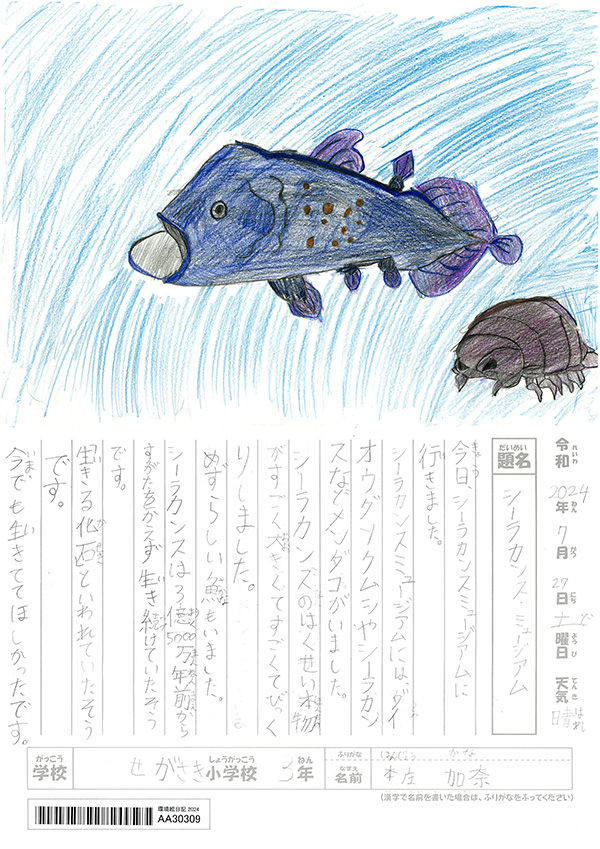 令和 2024年 7月 27日 土曜日 天気 晴れ
題名 シーラカンス・ミュージアム
今日、シーラカンスミュージアムに
行きました。
シーラカンスミュージアムには、ダイ
オウグソクムシやシーラカン
スなどメンダコがいました。
シーラカンスのはくせい本物
がすごく大きくてすごくてびっく
りしました。
めずらしい魚もいました。
シーラカンスは3億5000万年前から
すがたをかえず生き続けていたそう
です。
生きる化石といわれていたそう
です。
今でも生きててほしかったです。
学校 せがさき小学校 3年 名前 本庄 加奈
(漢字で名前を書いた場合は、ふりがなをふってください)
環境絵日記 2024
AA30309